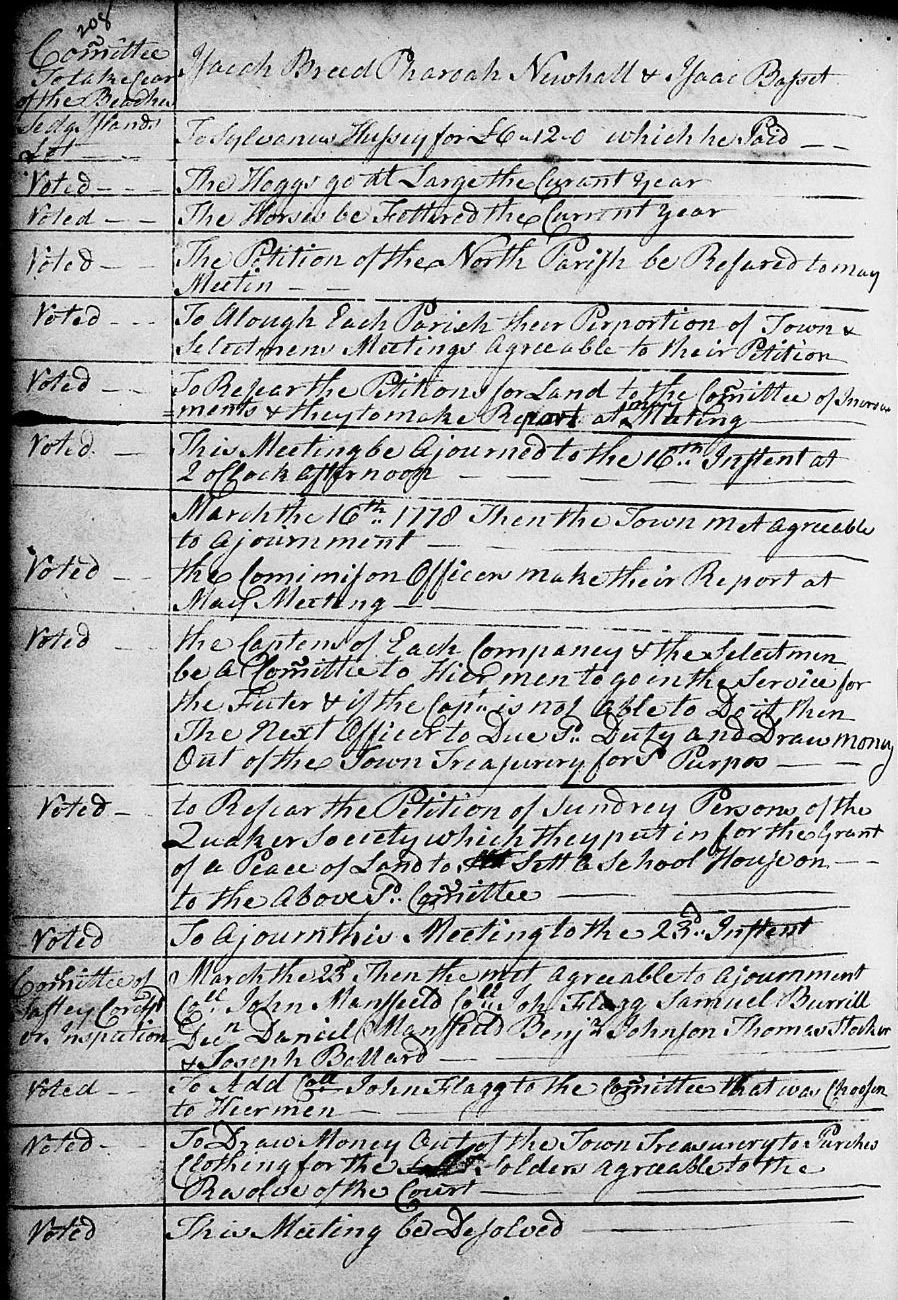 208
Comittee
To take Care
of the Beaches
Isacah Breed Pharoah Newhall & Isaac Basset
Sedge Islands
Lot
To Sylvanus Hussey for £6-12-0 which he Paid
Voted The Hoggs go at Large the Curant year
Voted The Horses be Fettered the Current year
Voted The Petition of the North Parish be Refared to may
Meetin
Voted To Alough Each Parish their Perportion of Town &
Selectmens Meetings Agreeable to their Petition
Voted To Refear the Petitions for Land to the Comittee of
ments & they to make Report at may Meeting
Voted This Meeting be Ajourned to the 16th Instent at
2 oClock afternoon
March the 16th 1778 Then the Town met Agreeable
to Ajournment
Voted the Comimison Officers make their Report at
May Meeting
Voted the Captens of Each Compancy & the Selectmen
be A Comittee to Hier men to go in the Service for
the Futer & if the Capt. is not Able to Do it then
The Next Officer to Due Sd. Duty and Draw money
Out of the Town Treasurery for Sd Purpos
Voted to Refear the Petition of Sundrey Persons of the
Quaker Society which they put in for the Grant
of a Peace of Land to Sett a School House on
to the Above Sd. Comittee
Voted To Ajourn this Meeting to the 23d. Instent
Comittee of
Saftey Corisp
or Inspection
March the 23d Then the met Agreeable to Ajournment
Coll John Mansfield Coll Joh Flagg Samuel Burrill
Decn Daniel Mansfield Benja Johnson Thomas Stocker
& Joseph Ballard
Voted To Add Coll John Flagg to the Comittee that was Choosen
to Hier men
Voted To Draw Money Out of the Town Treasurery to Purches
Clothing for the Solders Agreeable to the
Resolve of the Court
Voted This Meeting be Desolved